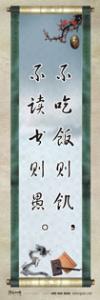 不吃饭则饥，
不读书则愚。